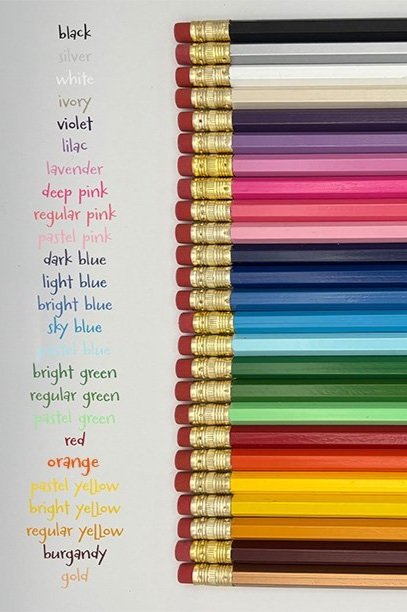 black
silver
white
ivory
violet
lilac
lavender
deep pink
regular pink
pastel pink
dark blue
light blue
bright blue
sky blue
pastel blue
bright green
regular green
pastel green
red
orange
pastel yellow
bright yellow
regular yellow
burgandy
gold